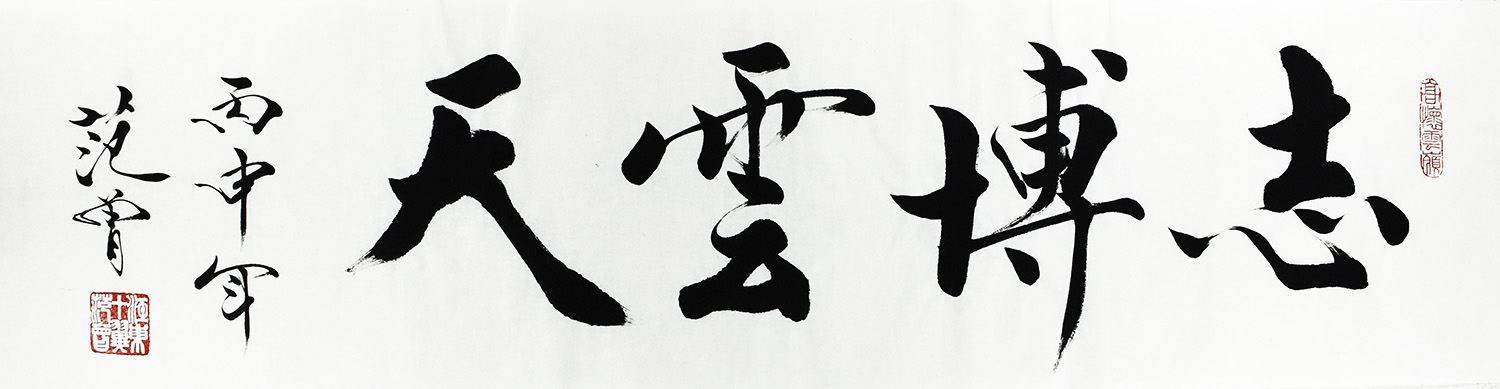 志博雲天
丙申年
范曾